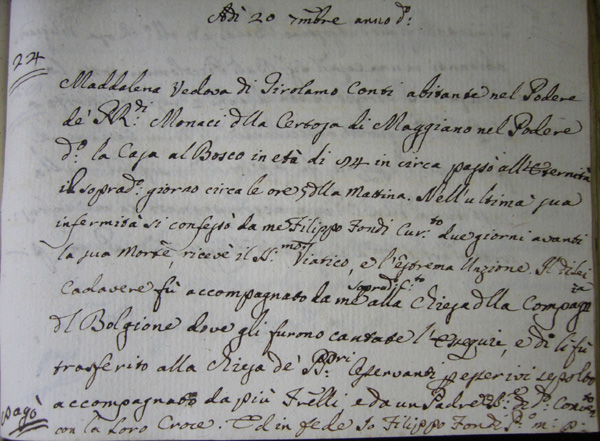 Adì 20 7mbre anno do:
24
Maddalena Vedova di Girolamo Conti abitante nel Podere
de' RR.di Monaci dlla Certosa di Maggiano nel Podere
do: la Casa al Bosco in età di 94 in circa passò all'Eternità
il soprado: giorno circa le ore 5 dlla Mattina. Nell'ultima sua
infermità si confessò da me Filippo Fondi Cur.to due giorni avanti
la sua Morte ricevè il SS.mo Viatico, e l'estrema Unzione. Il di lei
Cadavere fù accompagnato da me sopradi:to alla Chiesa dlla Compag:a
dl Bolgione dove gli furono cantate l'esequie, e di lì fù
trasferito alla Chiesa de' P:Pri Osservanti p esser ivi sepolto
accompagnato da più Frelli e da un Padre di do: Con:to
con la Loro Croce. Ed in fede Io Filippo Fondi Po: m: P:
pagò